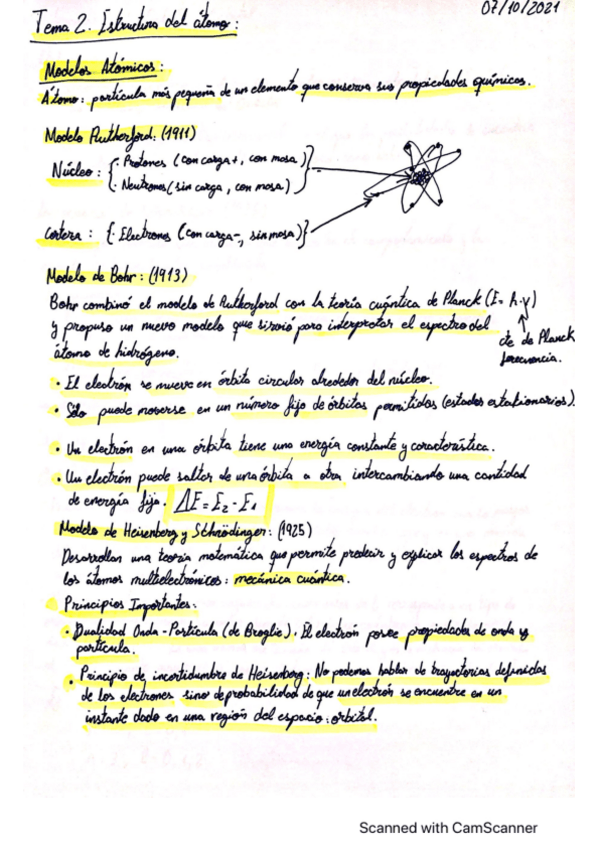 07/10/2021
Tema 2. Estructura del átomo:
Modelos Atómicos:
Átomo: partícula más pequeña de un elemento que conserva sus propiedades químicas.
Modelo Rutherford: (1911)
Núcleo: {· Protones (con carga +, con masa)
· Neutrones (sin carga, con masa)}
Corteza: {· Electrones (con carga -, sin masa)}
Modelo de Bohr: (1913)
Bohr combinó el modelo de Rutherford con la teoría cuántica de Planck (E = h·ν)
y propuso un nuevo modelo que sirvió para interpretar el espectro del
cte de Planck
átomo de hidrógeno.
frecuencia.
· El electrón se mueve en órbita circular alrededor del núcleo.
· Sólo puede moverse en un número fijo de órbitas permitidas (estados estacionarios).
· Un electrón en una órbita tiene una energía constante y característica.
· Un electrón puede saltar de una órbita a otra intercambiando una cantidad
de energía fija. ΔE = E₂ - E₁
Modelo de Heisenberg y Schrödinger: (1925)
Desarrollan una teoría matemática que permite predecir y explicar los espectros de
los átomos multielectrónicos: mecánica cuántica.
· Principios Importantes:
· Dualidad Onda - Partícula (de Broglie). El electrón posee propiedades de onda y
partícula.
· Principio de incertidumbre de Heisenberg: No podemos hablar de trayectorias definidas
de los electrones sino de probabilidad de que un electrón se encuentre en un
instante dado en una región del espacio: orbital.
Scanned with CamScanner